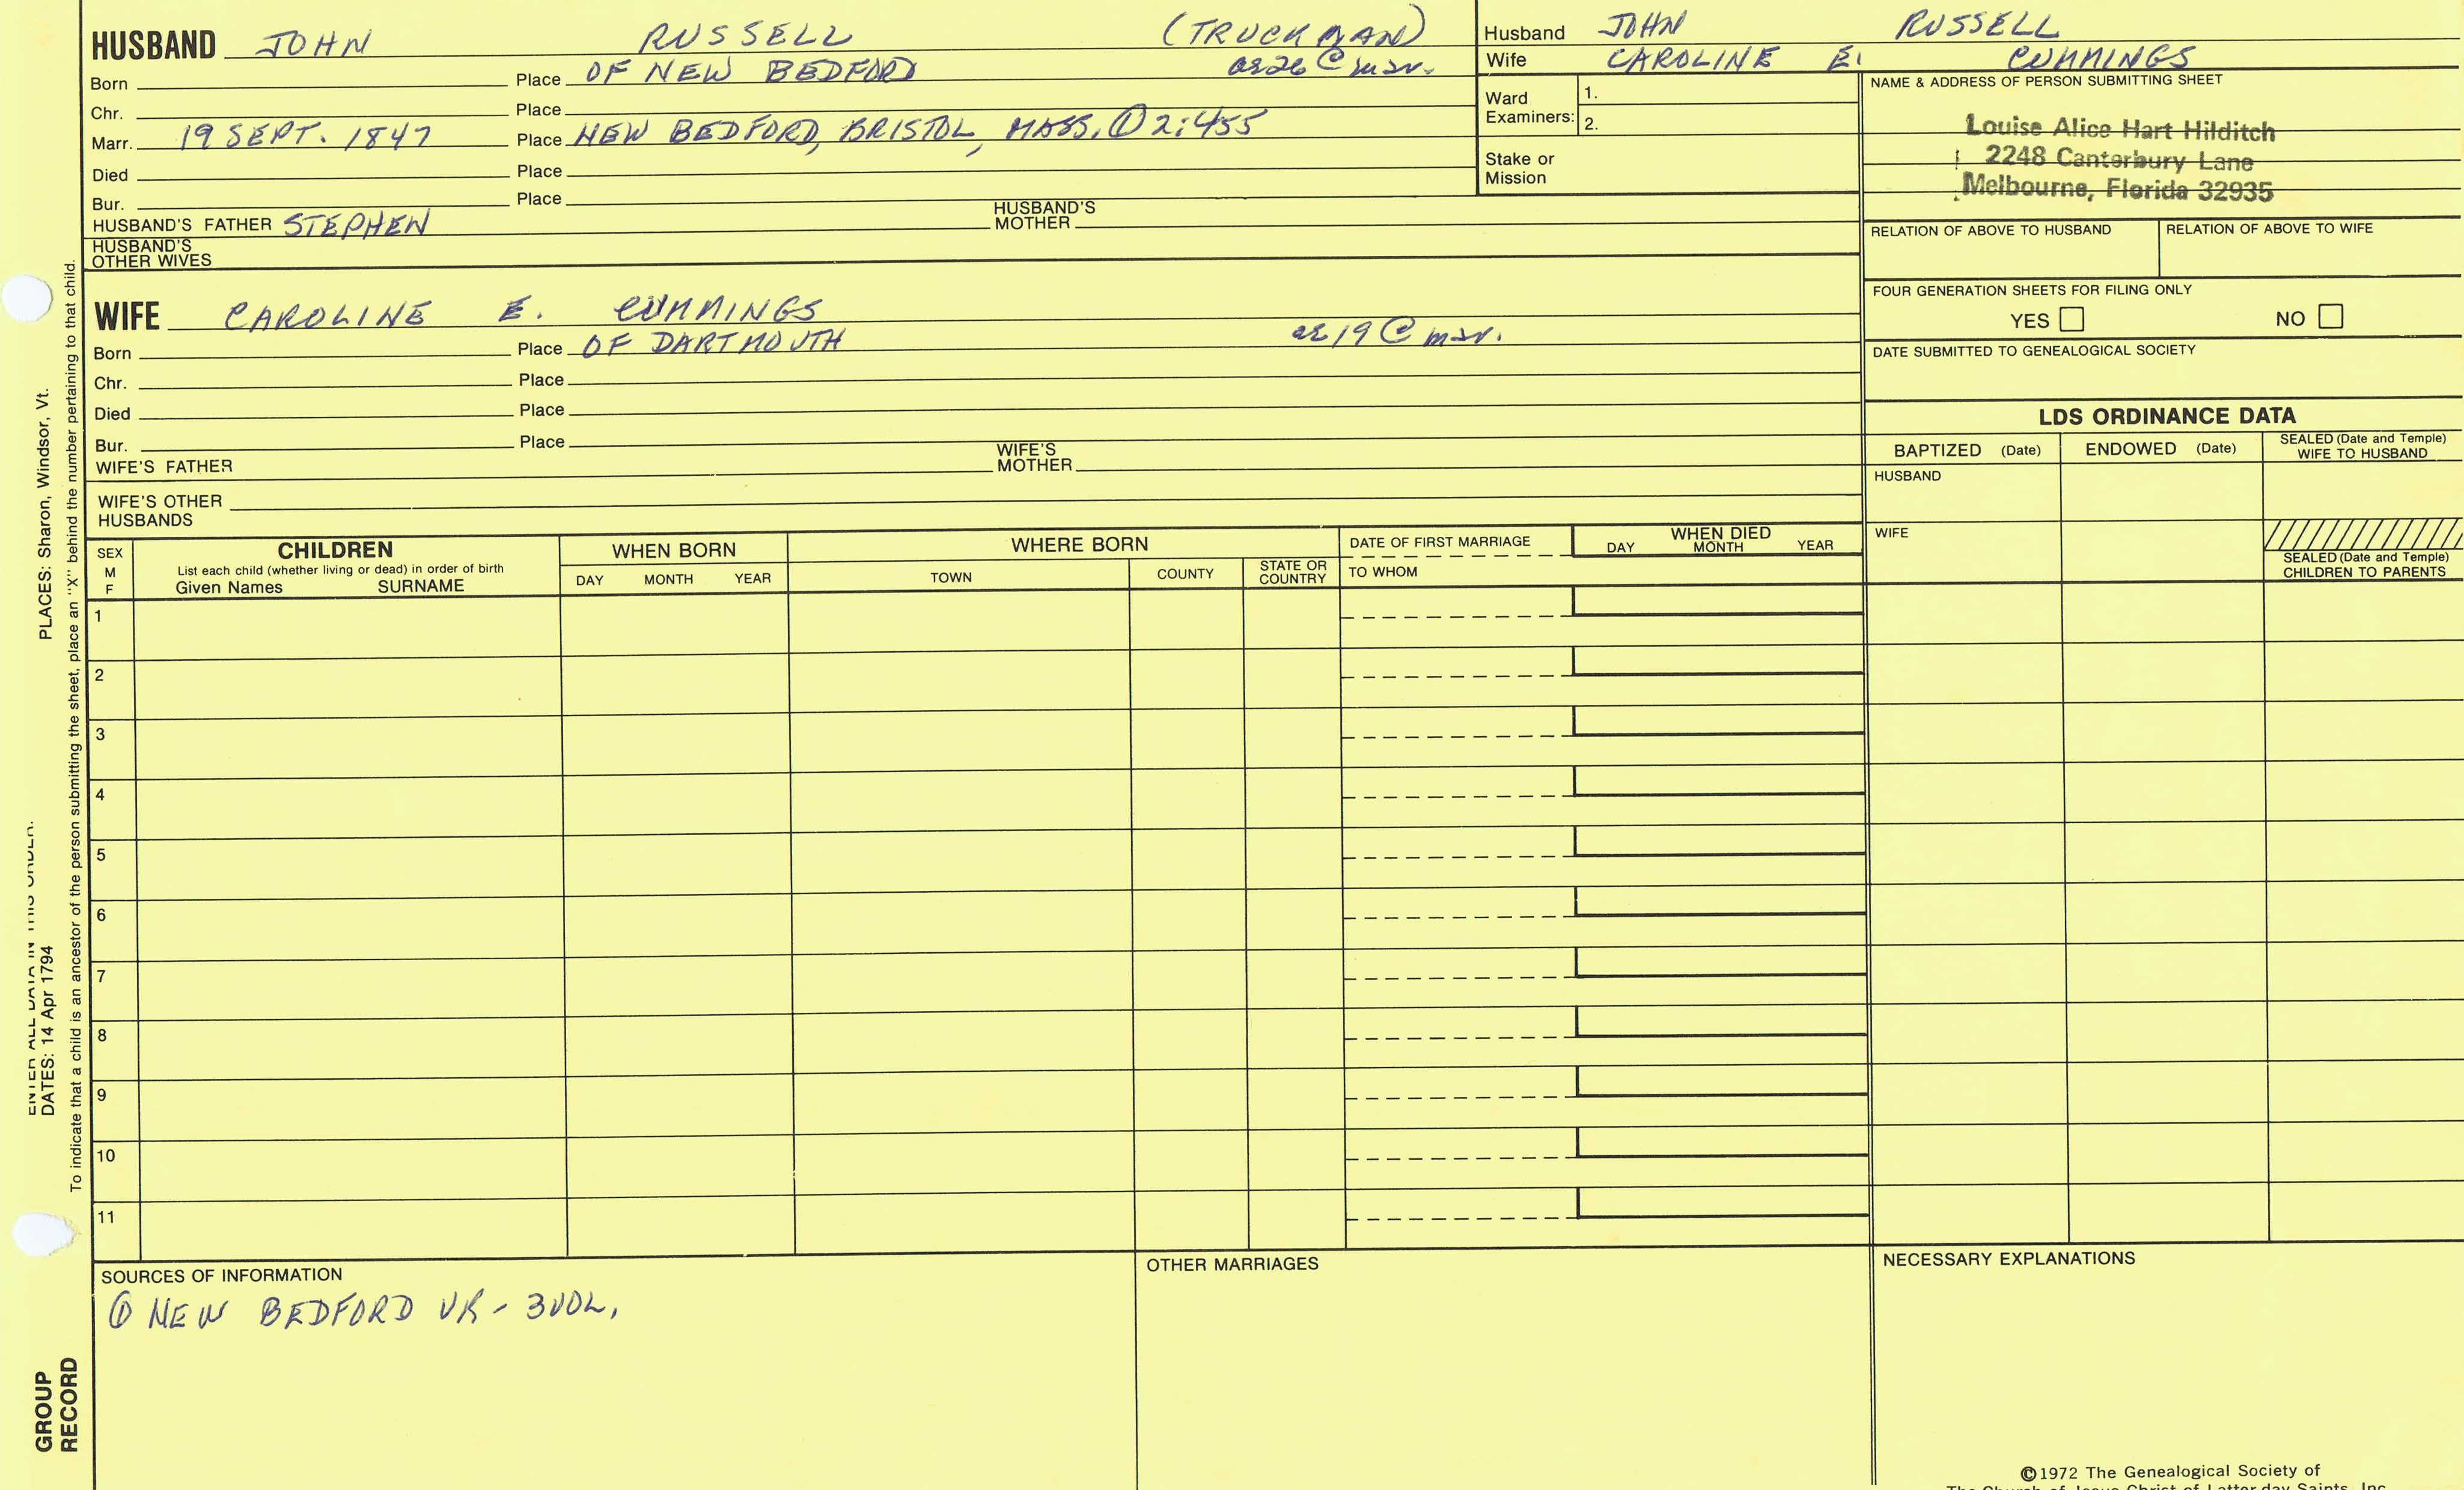 HUSBAND JOHN RUSSELL (TRUCKMAN)
Born Place OF NEW BEDFORD ae 26 @ mar.
Chr. Place
Marr. 19 SEPT. 1847 Place NEW BEDFORD, BRISTOL, MASS. ① 2:455
Died Place
Bur. Place
HUSBAND'S FATHER STEPHEN HUSBAND'S MOTHER
HUSBAND'S OTHER WIVES
Husband JOHN RUSSELL
Wife CAROLINE E. CUMMINGS
Ward Examiners: 1.
2.
Stake or Mission
NAME & ADDRESS OF PERSON SUBMITTING SHEET
Louise Alice Hart Hilditch
2248 Canterbury Lane
Melbourne, Florida 32935
RELATION OF ABOVE TO HUSBAND RELATION OF ABOVE TO WIFE
FOUR GENERATION SHEETS FOR FILING ONLY
YES NO
DATE SUBMITTED TO GENEALOGICAL SOCIETY
WIFE CAROLINE E. CUMMINGS
Born Place OF DARTMOUTH ae 19 @ mar.
Chr. Place
Died Place
Bur. Place
WIFE'S FATHER WIFE'S MOTHER
WIFE'S OTHER HUSBANDS
LDS ORDINANCE DATA
BAPTIZED (Date) ENDOWED (Date) SEALED (Date and Temple) WIFE TO HUSBAND
HUSBAND
WIFE
SEALED (Date and Temple) CHILDREN TO PARENTS
SEX M F
CHILDREN
List each child (whether living or dead) in order of birth
Given Names SURNAME
WHEN BORN
DAY MONTH YEAR
WHERE BORN
TOWN COUNTY STATE OR COUNTRY
DATE OF FIRST MARRIAGE
TO WHOM
WHEN DIED
DAY MONTH YEAR
1
2
3
4
5
6
7
8
9
10
11
SOURCES OF INFORMATION
① NEW BEDFORD VR - 3VOL.
OTHER MARRIAGES
NECESSARY EXPLANATIONS
©1972 The Genealogical Society of
The Church of Jesus Christ of Latter-day Saints, Inc.
ENTER ALL DATA IN THIS ORDER:
DATES: 14 Apr 1794 PLACES: Sharon, Windsor, Vt.
To indicate that a child is an ancestor of the person submitting the sheet, place an "X" behind the number pertaining to that child.
GROUP
RECORD